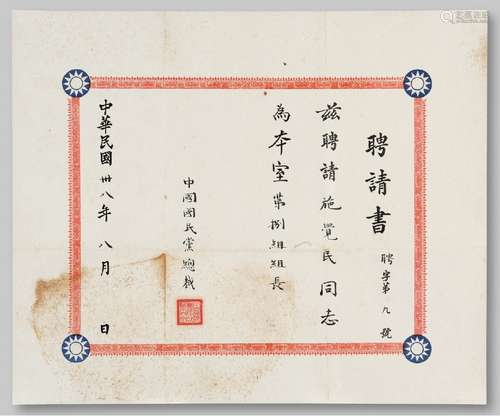 聘請書
聘字第九號
茲聘請施覺民同志
為本室第捌組組長
中國國民黨總裁
中華民國卅八年八月 日